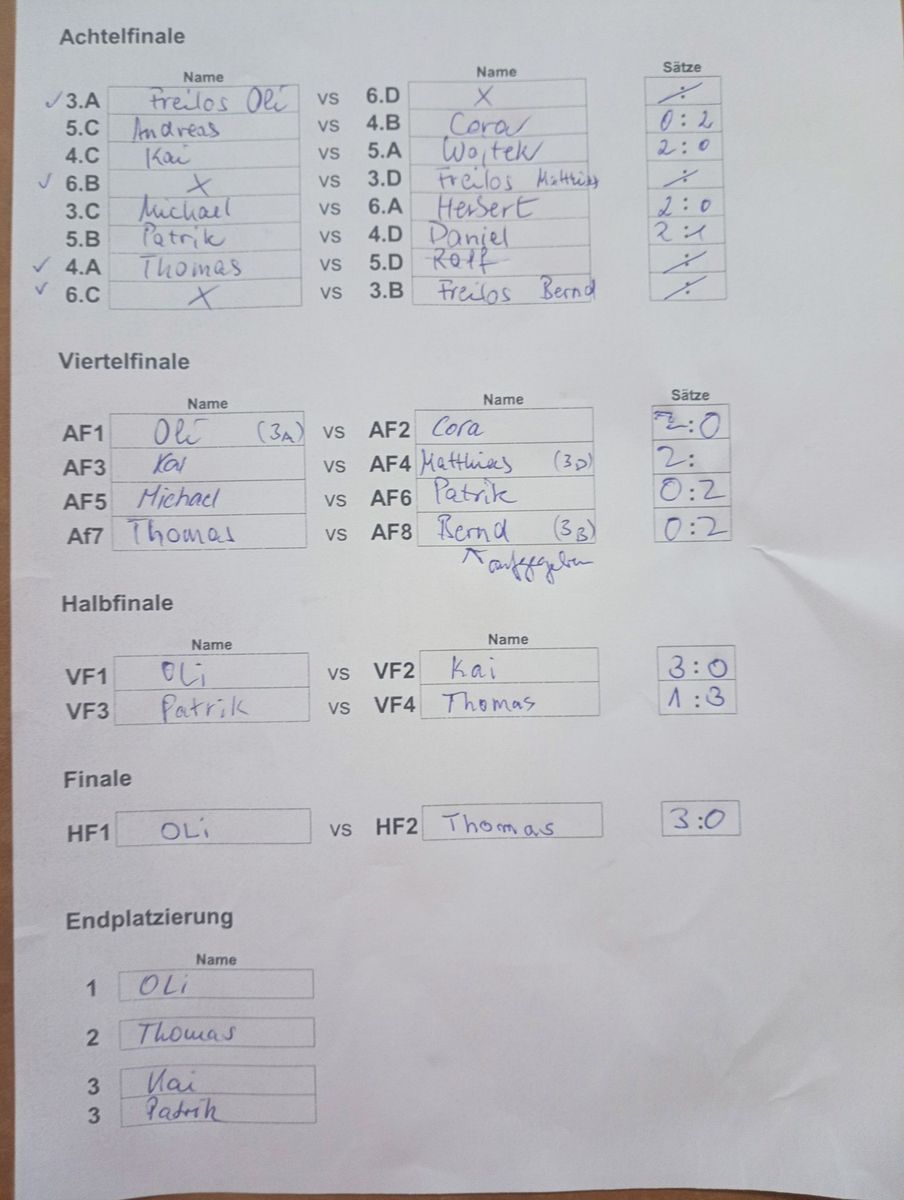 Achtelfinale
Name Name Sätze
✓ 3.A Freilos Oli vs 6.D X :
5.C Andreas vs 4.B Cora 0:2
4.C Kai vs 5.A Wojtek 2:0
✓ 6.B X vs 3.D Freilos Matthias :
3.C Michael vs 6.A Herbert 2:0
5.B Patrik vs 4.D Daniel 2:1
✓ 4.A Thomas vs 5.D Ralf :
✓ 6.C X vs 3.B Freilos Bernd :
Viertelfinale
Name Name Sätze
AF1 Oli (3A) vs AF2 Cora 2:0
AF3 Kai vs AF4 Matthias (3D) 2:
AF5 Michael vs AF6 Patrik 0:2
Af7 Thomas vs AF8 Bernd (3B) 0:2
↖ aufgegeben
Halbfinale
Name Name
VF1 OLi vs VF2 Kai 3:0
VF3 Patrik vs VF4 Thomas 1:3
Finale
HF1 OLi vs HF2 Thomas 3:0
Endplatzierung
Name
1 OLi
2 Thomas
3 Kai
3 Patrik